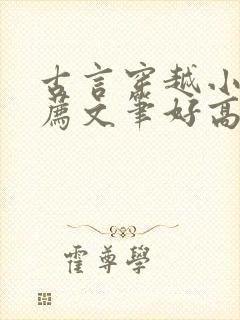 古言穿越小
薦文筆好高
霍尊學